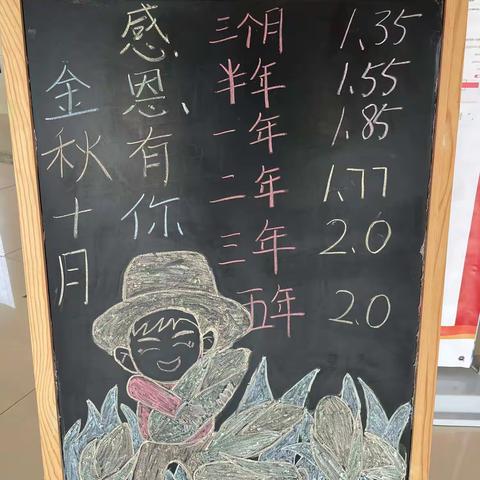 金秋十月
感恩、有你
三个月 1.35
半年 1.55
一年 1.85
二年 1.77
三年 2.0
五年 2.0